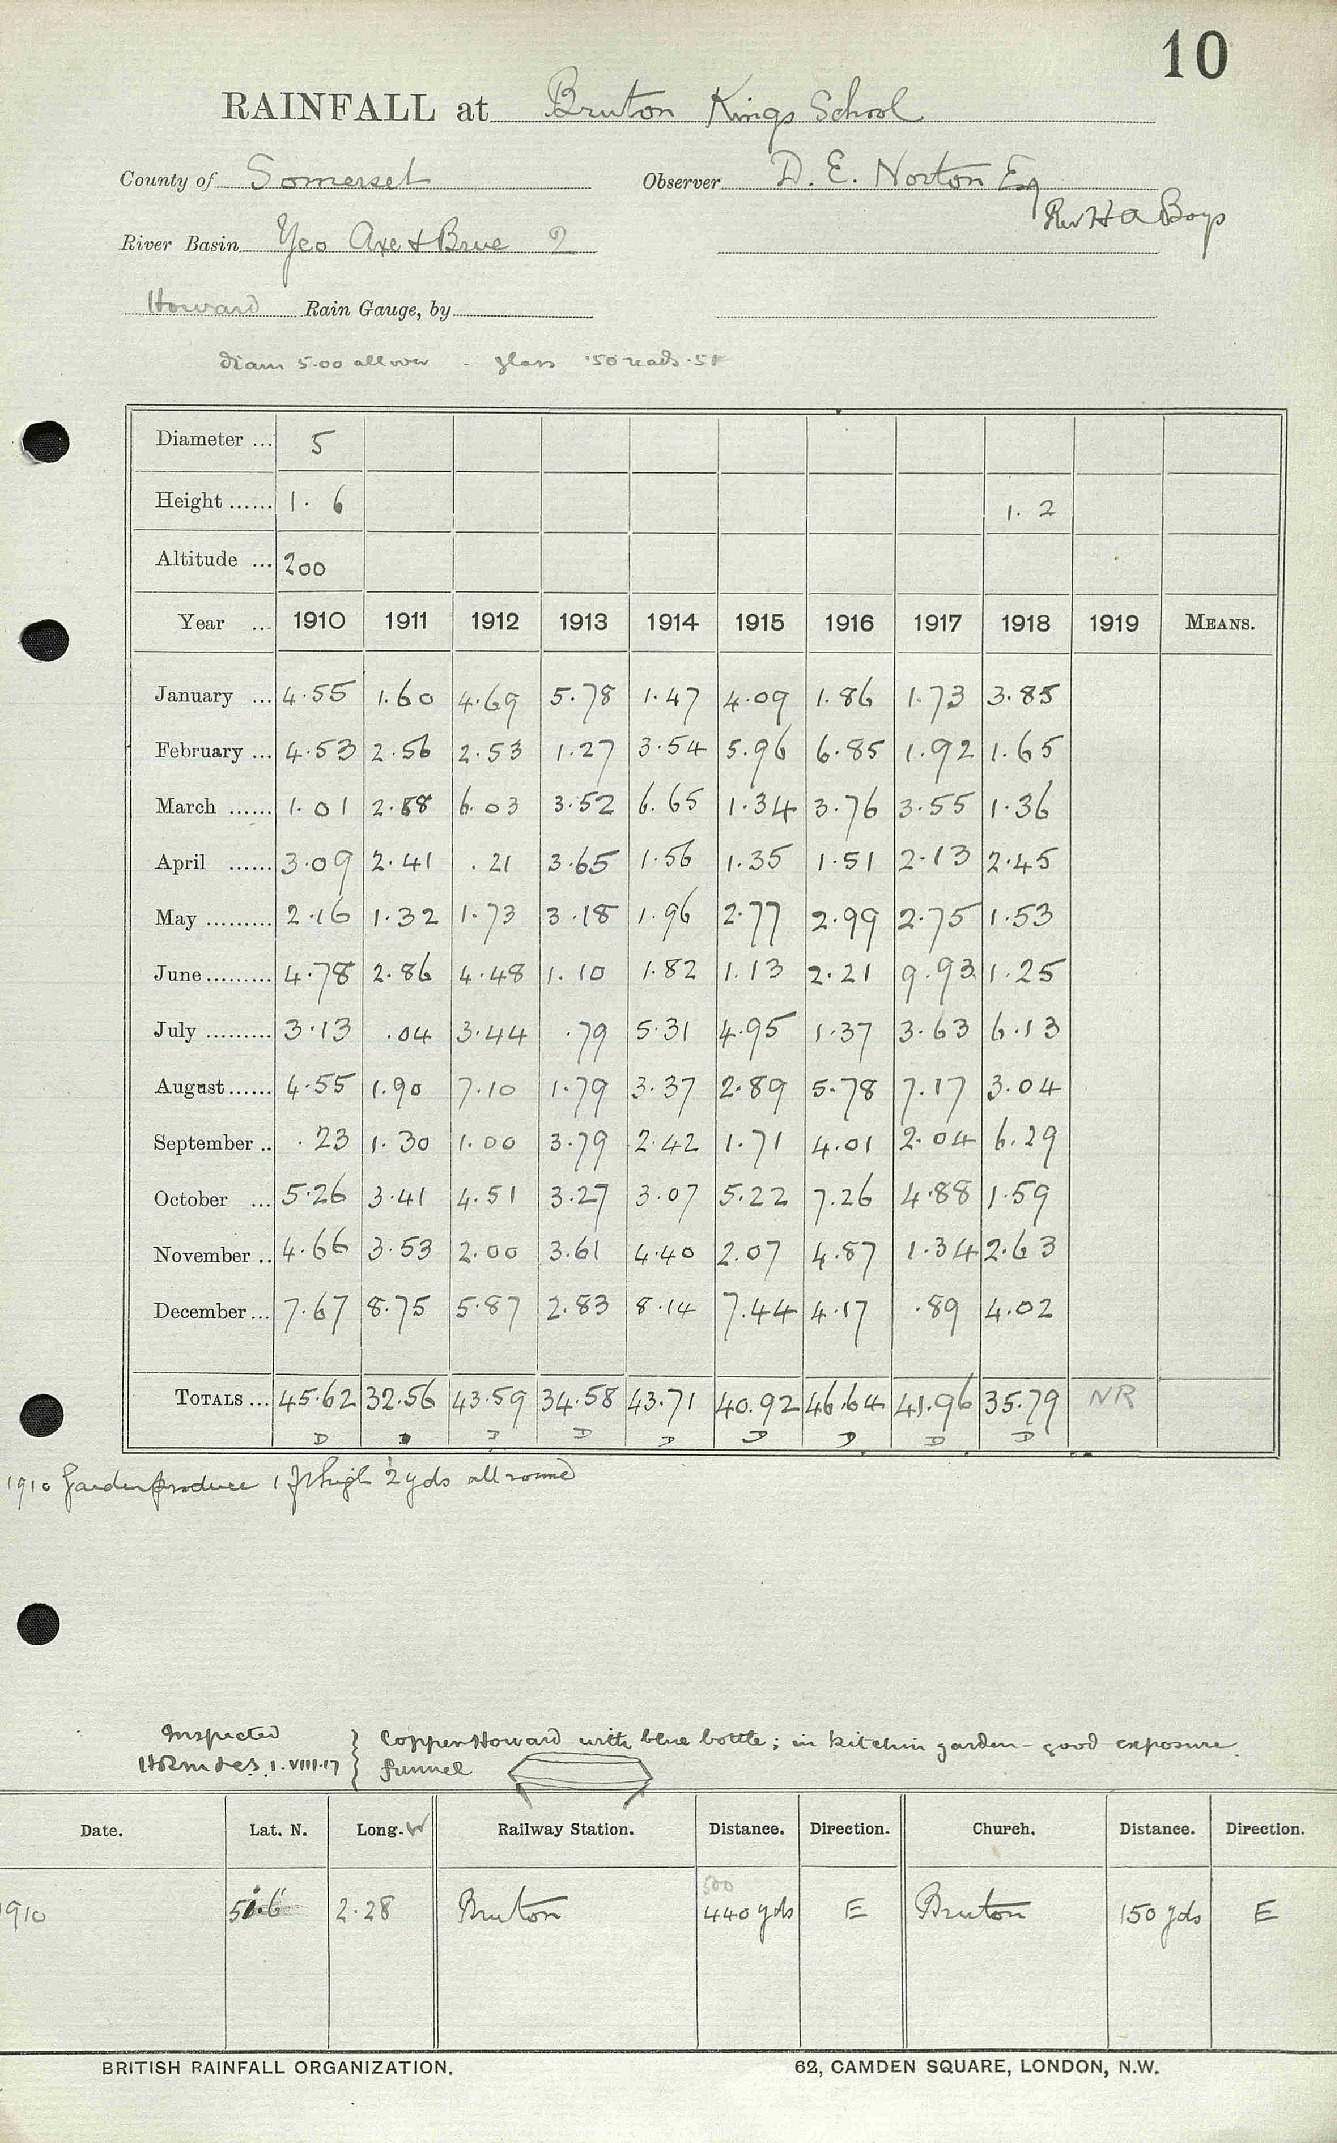 10
RAINFALL at Bruton Kings School
County of Somerset Observer D. E. Norton Esq
Rev H A Boys
River Basin Yeo Axe & Brue 2
Howard Rain Gauge, by
Diam 5.00 all over - glass .50 reads .51
Diameter ... 5
Height ...... 1. 6 1. 2
Altitude ... 200
Year ... 1910 1911 1912 1913 1914 1915 1916 1917 1918 1919 MEANS.
January ... 4.55 1.60 4.69 5.78 1.47 4.09 1.86 1.73 3.85
February ... 4.53 2.56 2.53 1.27 3.54 5.96 6.85 1.92 1.65
March ...... 1.01 2.88 6.03 3.52 6.65 1.34 3.76 3.55 1.36
April ...... 3.09 2.41 .21 3.65 1.56 1.35 1.51 2.13 2.45
May ......... 2.16 1.32 1.73 3.18 1.96 2.77 2.99 2.75 1.53
June......... 4.78 2.86 4.48 1.10 1.82 1.13 2.21 9.93 1.25
July ......... 3.13 .04 3.44 .79 5.31 4.95 1.37 3.63 6.13
August...... 4.55 1.90 7.10 1.79 3.37 2.89 5.78 7.17 3.04
September .. .23 1.30 1.00 3.79 2.42 1.71 4.01 2.04 6.29
October ... 5.26 3.41 4.51 3.27 3.07 5.22 7.26 4.88 1.59
November .. 4.66 3.53 2.00 3.61 4.40 2.07 4.87 1.34 2.63
December ... 7.67 8.75 5.87 2.83 8.14 7.44 4.17 .89 4.02
TOTALS ... 45.62 32.56 43.59 34.58 43.71 40.92 46.64 41.96 35.79 NR
D D D D D D D D D
1910 Garden produce 1 ft high 2 yds all round
Inspected } Copper Howard with blue bottle; in kitchin garden - good exposure.
1.VIII.17 } funnel
Date. Lat. N. Long. W Railway Station. Distance. Direction. Church. Distance. Direction.
500
1910 51.6 2.28 Bruton 440 yds E Bruton 150 yds E
BRITISH RAINFALL ORGANIZATION. 62, CAMDEN SQUARE, LONDON, N.W.